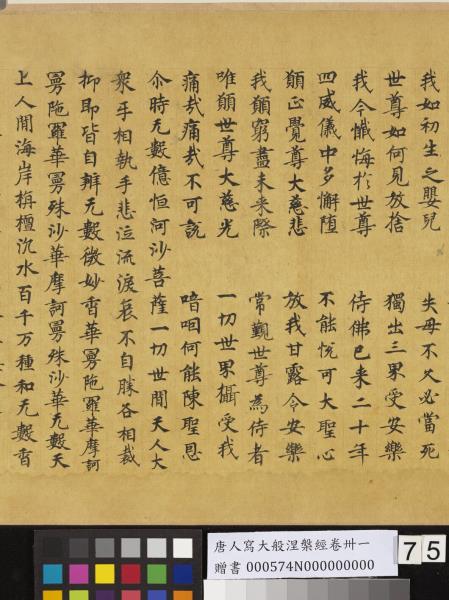 我如初生之嬰兒　失母不久必當死
世尊如何見放捨　獨出三界受安樂
我今懴悔於世尊　侍佛已来二十年
四威儀中多懈堕　不能恱可大聖心
願正覺尊大慈悲　放我甘露令安樂
我願窮盡未来際　常覲世尊為侍者
唯願世尊大慈光　一切世界攝受我
痛㢤痛㢤不可說　嗚咽何能陳聖恩
尒時无數億恒河沙菩薩一切世間天人大
衆手相執手悲泣流淚哀不自勝各相裁
抑即皆自辦无數微妙香華曼陁羅華摩訶
曼陁羅華曼殊沙華摩訶曼殊沙華无數天
上人間海岸栴檀沉水百千万種和无數香
唐人寫大般涅槃經卷卅一
贈書 000574N000000000
75